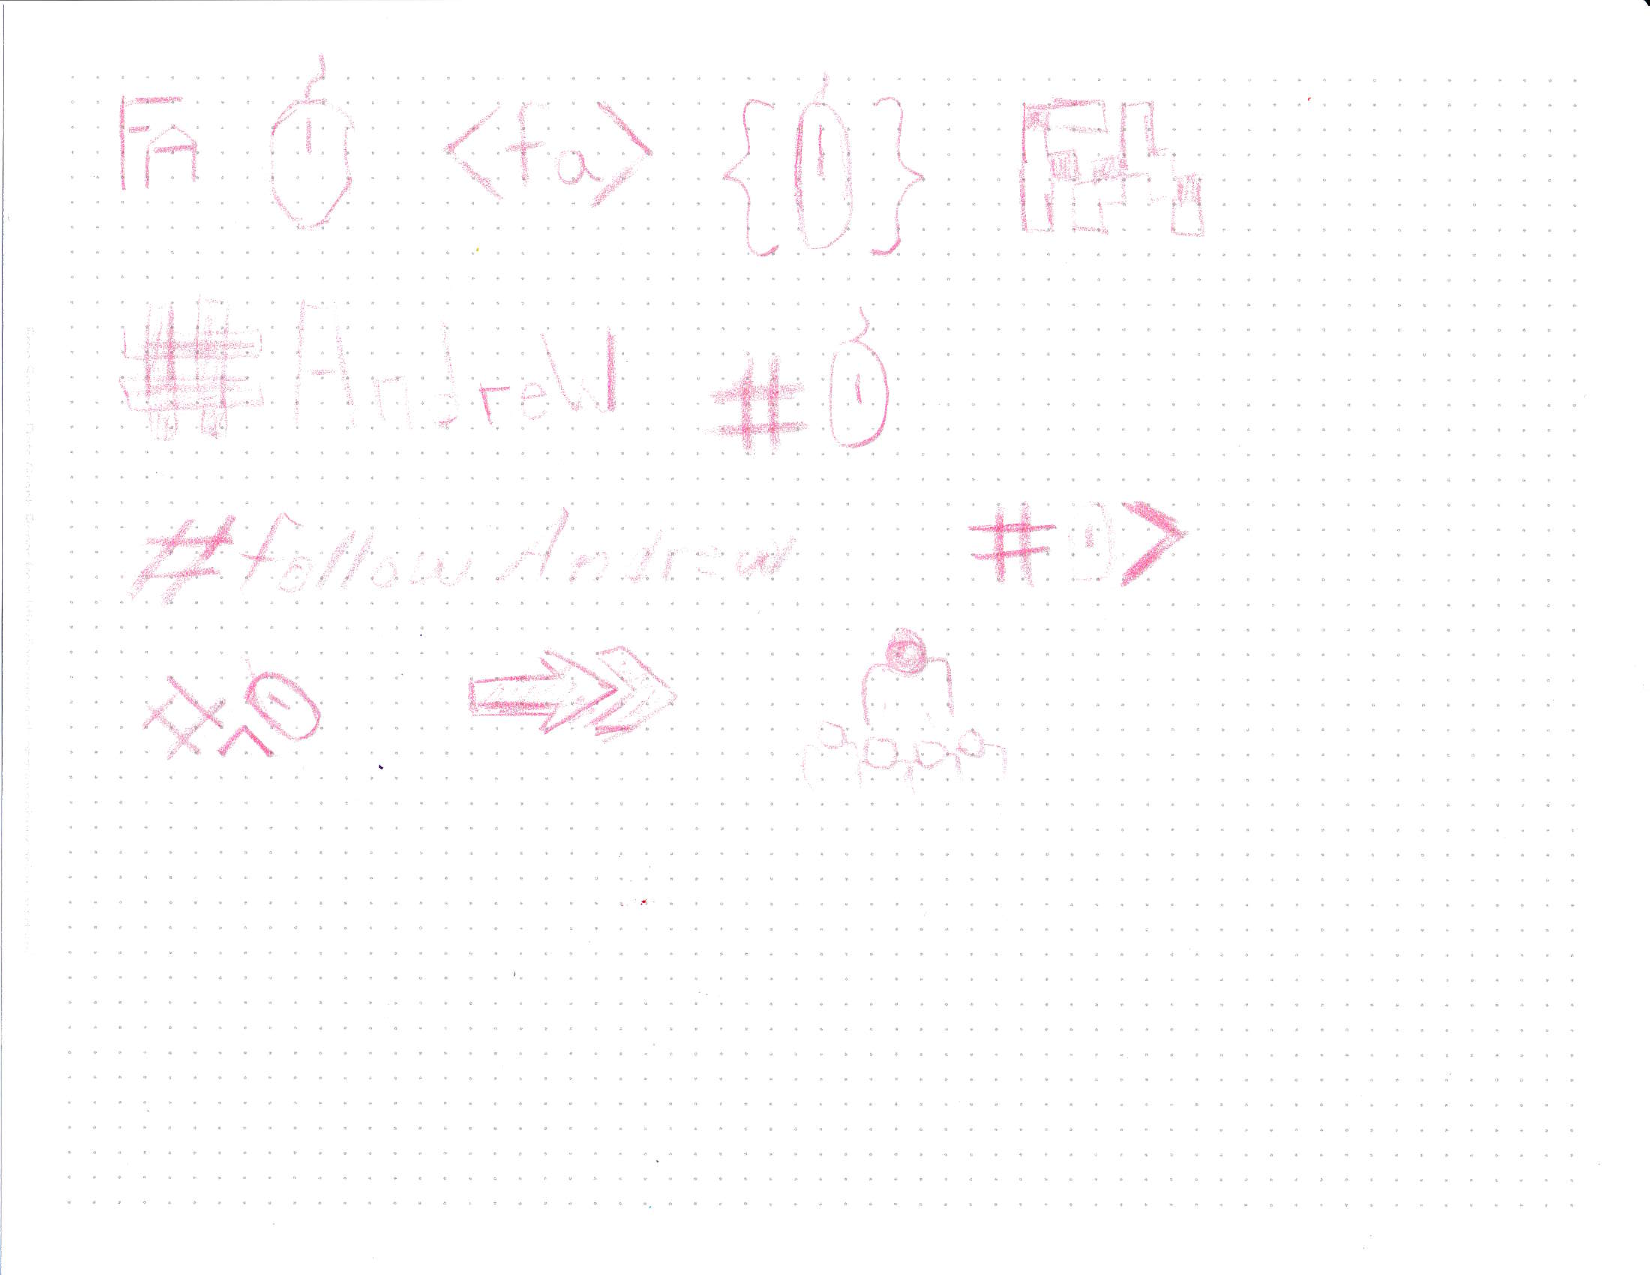 FA <fa> { } FA
# Andrew #
#follow Andrew # >
#